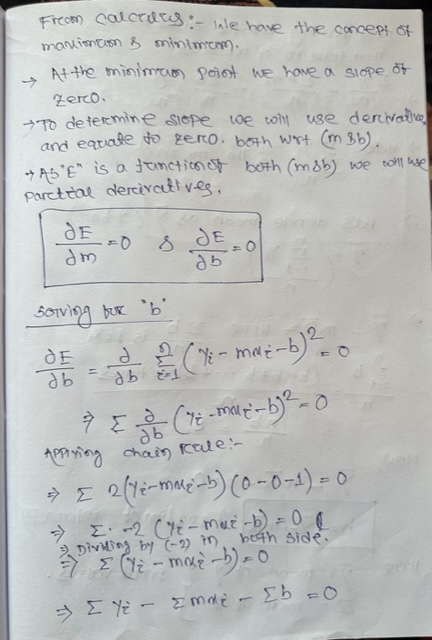 From calculus:- We have the concept of
maximum & minimum.
→ At the minimum point we have a slope of
zero.
→ To determine slope we will use derivative
and equate to zero. both wrt (m & b).
→ As "E" is a function of both (m & b) we will use
partial derivatives.
∂E/∂m = 0 & ∂E/∂b = 0
Solving for "b"
∂E/∂b = ∂/∂b Σ_{i=1}^{n} (yi - mxi - b)² = 0
⇒ Σ ∂/∂b (yi - mxi - b)² = 0
Applying chain rule:-
⇒ Σ 2(yi - mxi - b) (0 - 0 - 1) = 0
⇒ Σ -2 (yi - mxi - b) = 0
⇒ Dividing by (-2) in both side.
⇒ Σ (yi - mxi - b) = 0
⇒ Σ yi - Σ mxi - Σ b = 0